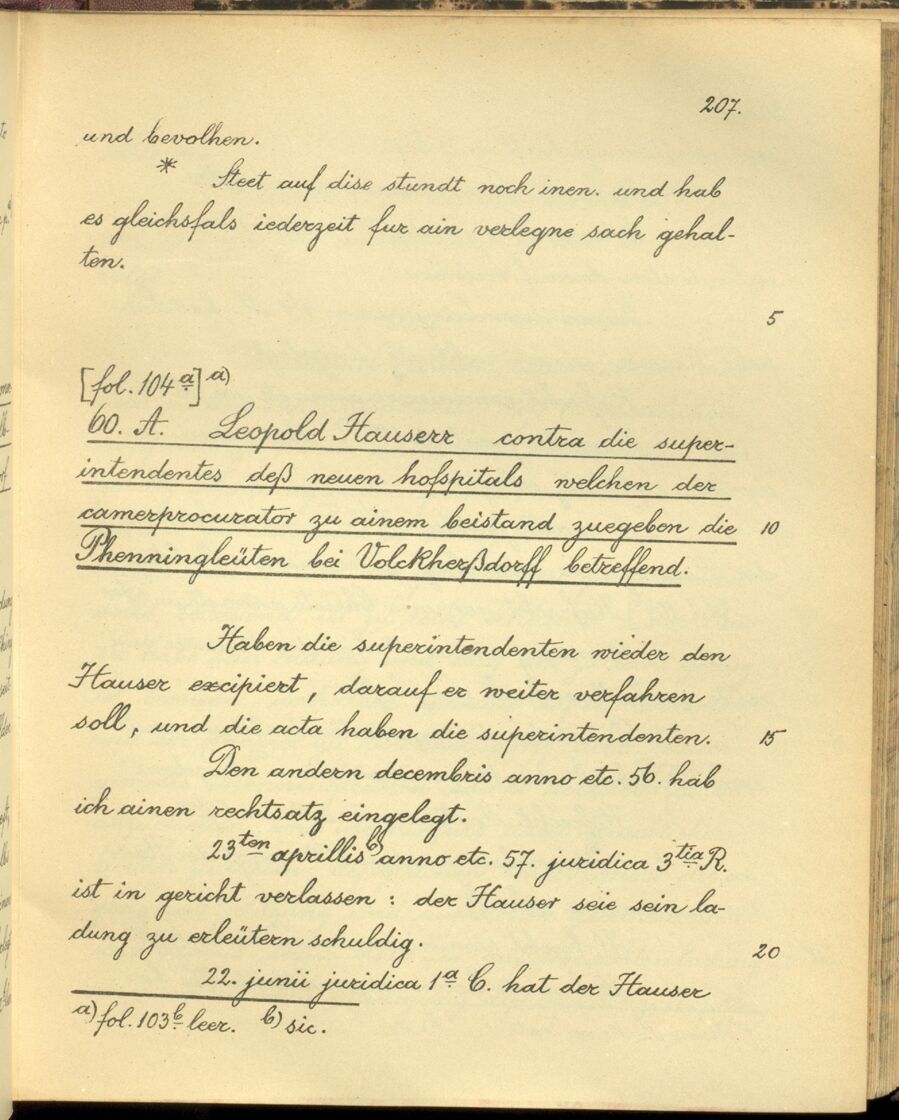 207.
und bevolhen.
* Steet auf dise stundt noch inen. und hab
es gleichsfals iederzeit fur ain verlegne sach gehal-
ten.
5
[fol. 104a] a)
60. A. Leopold Hauserr contra die super-
intendentes deß neuen hofspitals welchen der
camerprocurator zu ainem beistand zuegeben die 10
Phenningleüten bei Volckherßdorff betreffend.
Haben die superintendenten wieder den
Hauser excipiert, darauf er weiter verfahren
soll, und die acta haben die superintendenten. 15
Den andern decembris anno etc. 56. hab
ich ainen rechtsatz eingelegt.
23ten aprillis b) anno etc. 57. juridica 3tia R.
ist in gericht verlassen : der Hauser seie sein la-
dung zu erleütern schuldig. 20
22. junii juridica 1a C. hat der Hauser
a) fol. 103b leer. b) sic.